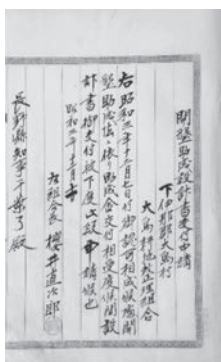 開墾助成設計書変更申請
下伊那郡大島村
大島耕地整理組合
右昭和三年十二月七日付御認可相成候處開
墾助成法ニ依リ助成金交付相受度候間設
計書御交付被下度此段申請候也
昭和三年十二月 日
右組合長 櫻井直次郎
長野縣知事千葉了殿